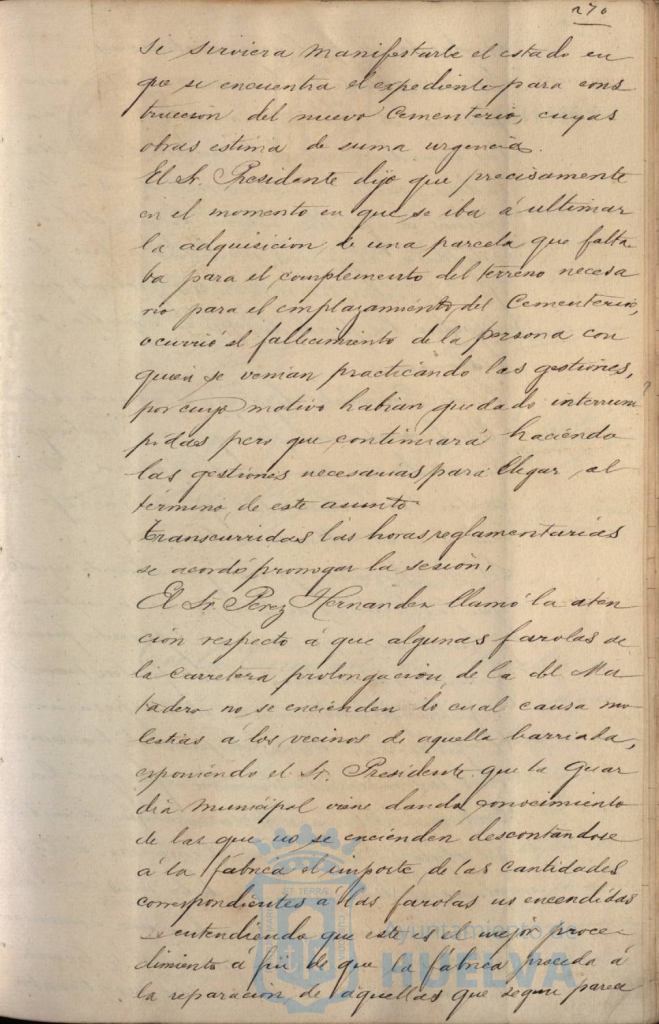 270
se serviera manifestarle el estado en
que se encuentra el expediente para cons
truccion del nuevo Cementerio, cuyas
obras estima de suma urgencia.
El Sr. Presidente dijo que precisamente
en el momento en que se iba á ultimar
la adquisicion de una parcela que falta
ba para el complemento del terreno necesa
rio para el emplazamiento del Cementerio,
ocurrió el fallecimiento de la persona con
quien se venian practicando las gestiones,
por cuyo motivo habian quedado interrum
pidas pero que continuará haciendo
las gestiones necesarias para llegar al
término de este asunto
Transcurridas las horas reglamentarias
se acordó prorrogar la sesión.
El Sr. Perez Hernandez llamó la aten
ción respecto á que algunas farolas de
la carretera prolongación de la del Ma
tadero no se encienden lo cual causa mo
lestias á los vecinos de aquella barriada,
exponiendo el Sr. Presidente que la Guar
dia Municipal viene dando conocimiento
de las que no se encienden descontandose
á la fabrica el importe de las cantidades
correspondientes á las farolas no encendidas
entendiendo que este es el mejor proce-
dimiento á fin de que la fabrica proceda á
la reparación de aquellas que segun parece
Ayuntamiento de
HUELVA